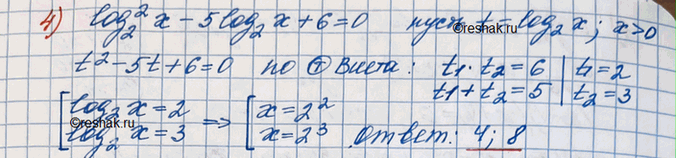 4) log₂²x - 5log₂x + 6 = 0 пусть t = log₂x; x>0
t² - 5t + 6 = 0 по Ⓣ Виета: t₁·t₂ = 6 | t₁ = 2
t₁ + t₂ = 5 | t₂ = 3
[log₂x = 2 ⇒ [x = 2²
log₂x = 3 x = 2³ Ответ: 4; 8
©reshak.ru
©reshak.ru